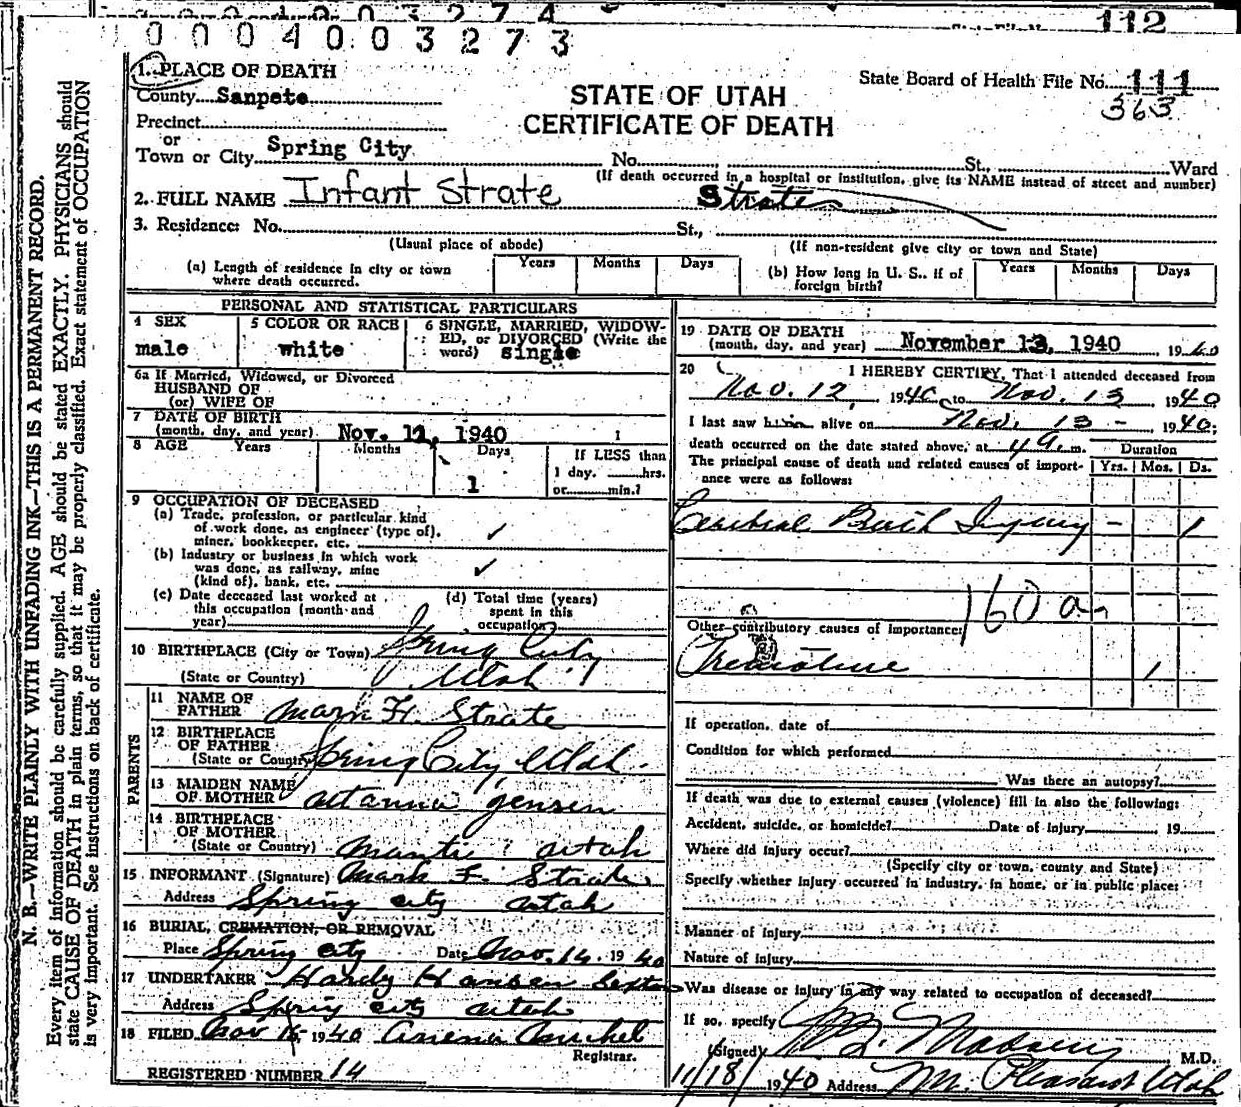 0 0 0 4 0 0 3 2 7 4
112
0 0 0 4 0 0 3 2 7 3
N. B.—WRITE PLAINLY WITH UNFADING INK—THIS IS A PERMANENT RECORD.
Every item of information should be carefully supplied. AGE should be stated EXACTLY. PHYSICIANS should
state CAUSE OF DEATH in plain terms, so that it may be properly classified. Exact statement of OCCUPATION
is very important. See instructions on back of certificate.
1. PLACE OF DEATH
State Board of Health File No. 111
363
County Sanpete
STATE OF UTAH
CERTIFICATE OF DEATH
Precinct
or
Town or City Spring City No. St., Ward
(If death occurred in a hospital or institution, give its NAME instead of street and number)
2. FULL NAME Infant Strate Strate
3. Residence: No. St.,
(Usual place of abode) (If non-resident give city or town and State)
(a) Length of residence in city or town where death occurred. Years Months Days
(b) How long in U. S., if of foreign birth? Years Months Days
PERSONAL AND STATISTICAL PARTICULARS
4 SEX male
5 COLOR OR RACE white
6 SINGLE, MARRIED, WIDOWED, or DIVORCED (Write the word) single
6a If Married, Widowed, or Divorced
HUSBAND OF
(or) WIFE OF
7 DATE OF BIRTH
(month, day, and year) Nov. 1940
8 AGE Years Months Days 1
If LESS than
1 day, hrs.
or min.?
9 OCCUPATION OF DECEASED
(a) Trade, profession, or particular kind
of work done, as engineer (type of),
miner, bookkeeper, etc. ✓
(b) Industry or business in which work
was done, as railway, mine
(kind of), bank, etc. ✓
(c) Date deceased last worked at
this occupation (month and
year)
(d) Total time (years)
spent in this
occupation
10 BIRTHPLACE (City or Town) Spring City
(State or Country) Utah
PARENTS
11 NAME OF
FATHER Mark F. Strate
12 BIRTHPLACE
OF FATHER
(State or Country) Spring City, Utah.
13 MAIDEN NAME
OF MOTHER Jensen
14 BIRTHPLACE
OF MOTHER
(State or Country) Manti Utah
15 INFORMANT (Signature) Mark F. Strate
Address Spring city utah
16 BURIAL, CREMATION, OR REMOVAL
Place Spring city Date Nov. 14, 1940
17 UNDERTAKER Hardy Hansen Sexton
Address Spring city utah
18 FILED Nov 1940
Registrar.
REGISTERED NUMBER 14
19 DATE OF DEATH
(month, day, and year) November 13, 1940 1940
20 I HEREBY CERTIFY, That I attended deceased from
Nov. 12, 1940 to Nov. 13 1940
I last saw him alive on Nov. 13 - 1940;
death occurred on the date stated above, at 4 a. m.
Duration
The principal cause of death and related causes of importance were as follows: Yrs. Mos. Ds.
Cerebral Birth Injury - 1
160 a
Other contributory causes of importance:
Premature
If operation, date of
Condition for which performed
Was there an autopsy?
If death was due to external causes (violence) fill in also the following:
Accident, suicide, or homicide? Date of injury 19
Where did injury occur?
(Specify city or town, county and State)
Specify whether injury occurred in industry, in home, or in public place:
Manner of injury
Nature of injury
Was disease or injury in any way related to occupation of deceased?
If so, specify
(Signed) Madsen M.D.
11/18/ 1940 Address Mt. Pleasant Utah